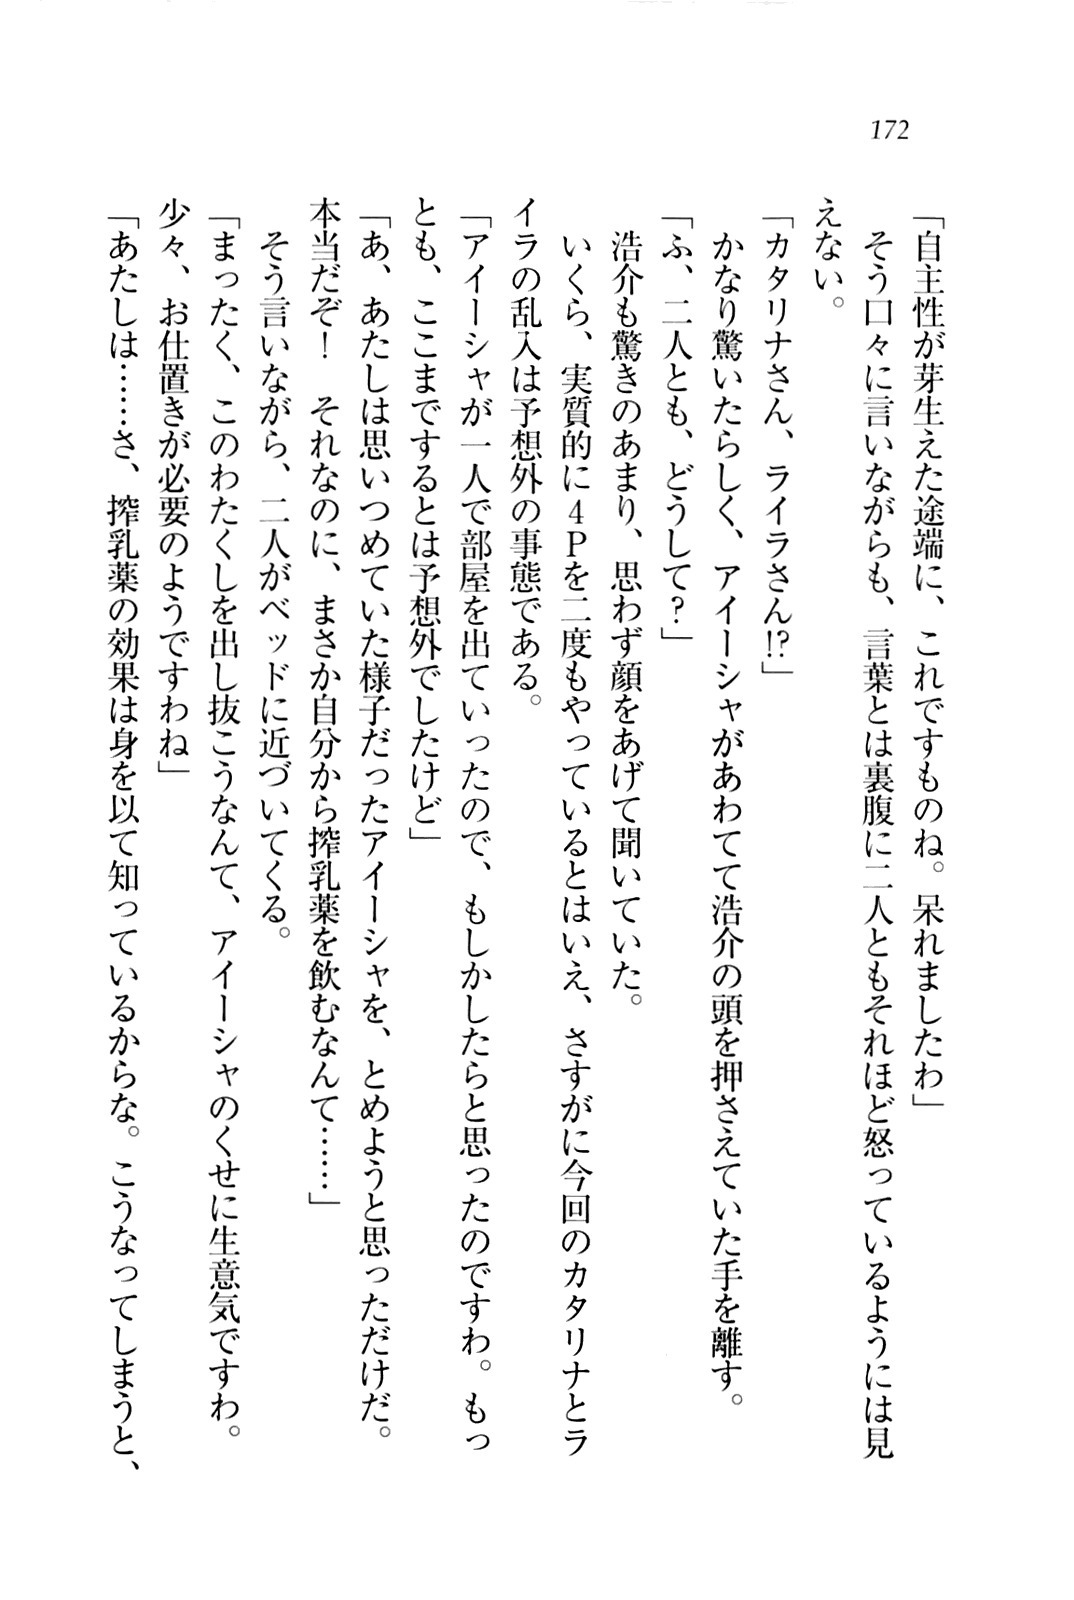 172
「自主性が芽生えた途端に、これですものね。呆れましたわ」
そう口々に言いながらも、言葉とは裏腹に二人ともそれほど怒っているようには見
えない。
「カタリナさん、ライラさん!?」
かなり驚いたらしく、アイーシャがあわてて浩介の頭を押さえていた手を離す。
「ふ、二人とも、どうして？」
浩介も驚きのあまり、思わず顔をあげて聞いていた。
いくら、実質的に４Ｐを二度もやっているとはいえ、さすがに今回のカタリナとラ
イラの乱入は予想外の事態である。
「アイーシャが一人で部屋を出ていったので、もしかしたらと思ったのですわ。もっ
とも、ここまでするとは予想外でしたけど」
「あ、あたしは思いつめていた様子だったアイーシャを、とめようと思っただけだ。
本当だぞ！　それなのに、まさか自分から搾乳薬を飲むなんて……」
そう言いながら、二人がベッドに近づいてくる。
「まったく、このわたくしを出し抜こうなんて、アイーシャのくせに生意気ですわ。
少々、お仕置きが必要のようですわね」
「あたしは……さ、搾乳薬の効果は身を以て知っているからな。こうなってしまうと、